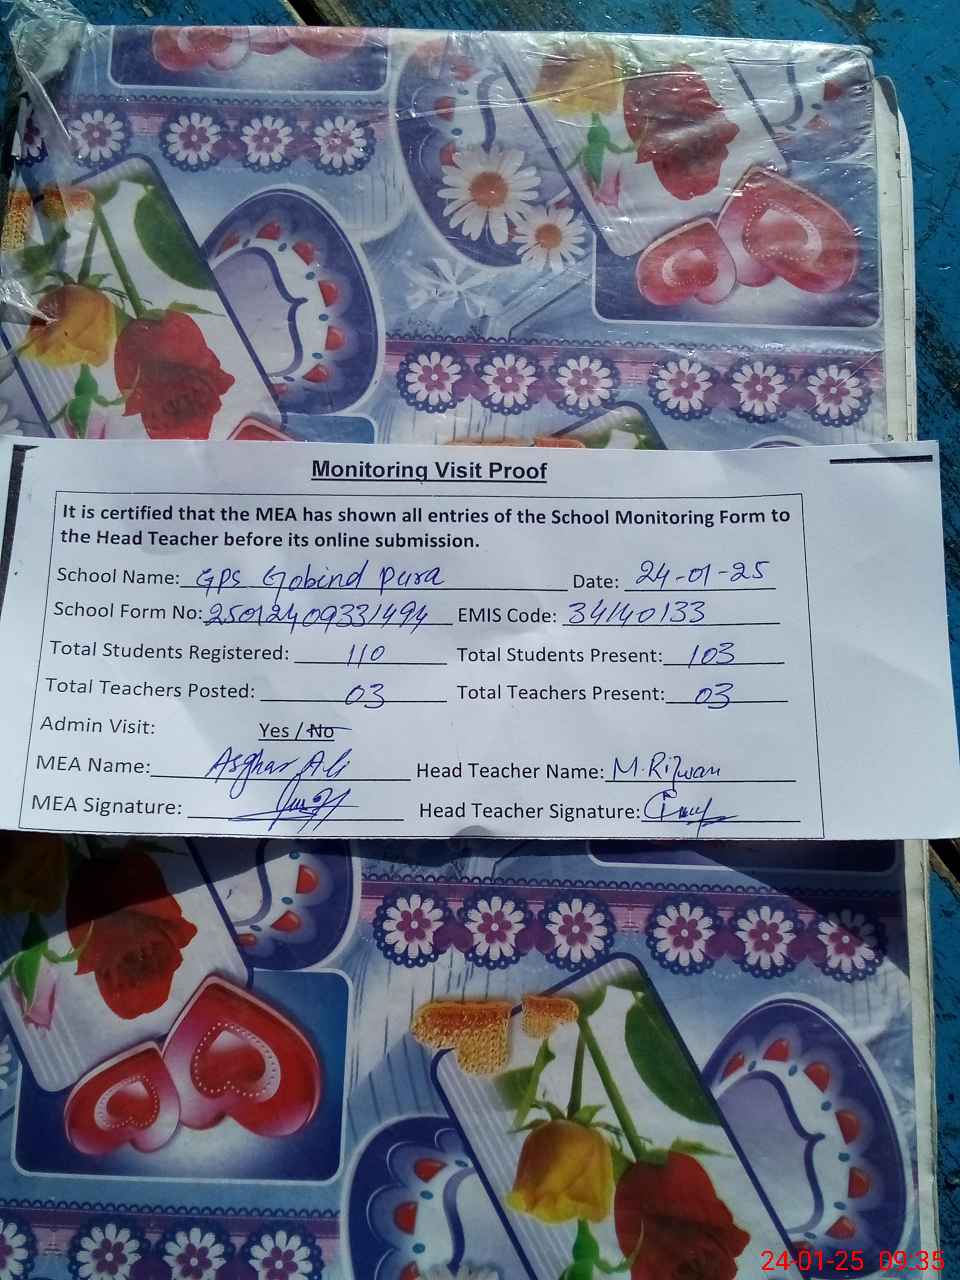 Monitoring Visit Proof
It is certified that the MEA has shown all entries of the School Monitoring Form to
the Head Teacher before its online submission.
School Name: GPS Gobind Pura Date: 24-01-25
School Form No: 25012409331494 EMIS Code: 34140133
Total Students Registered: 110 Total Students Present: 103
Total Teachers Posted: 03 Total Teachers Present: 03
Admin Visit: Yes / No
MEA Name: Asghar Ali Head Teacher Name: M.Rizwan
MEA Signature: Head Teacher Signature:
24-01-25 09:35